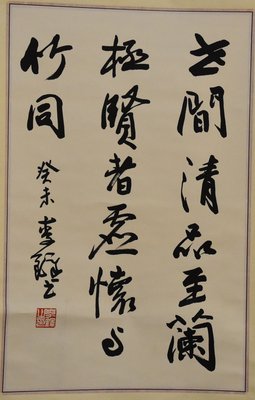 世間清品至蘭
極賢者虛懷與
竹同
癸未 李鐸書